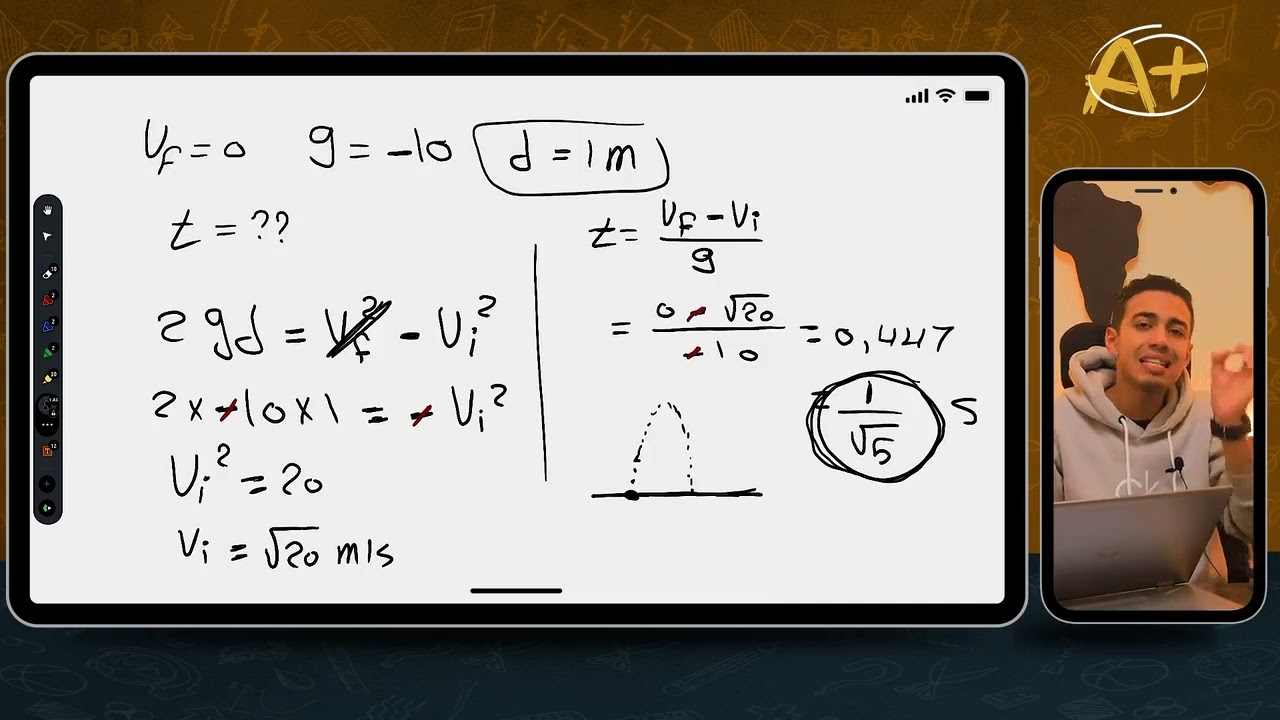 A+
Vf = 0 g = -10 d = 1 m
t = ??
2 gd = Vf² - Vi²
2 x -10 x 1 = - Vi²
Vi² = 20
Vi = √20 m/s
t = (Vf - Vi) / g
= (0 - √20) / -10 = 0,447
= 1/√5 s